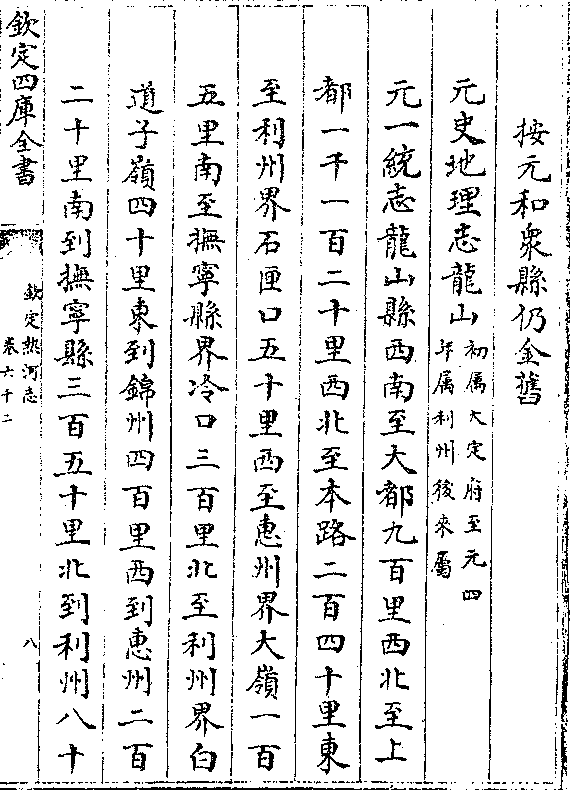 按元和衆縣仍金舊
元史地理志龍山初属大定府至元四
年属利州後來屬
元一統志龍山縣西南至大都九百里西北至上
都一千一百二十里西北至本路二百四十里東
至利州界石匣口五十里西至惠州界大嶺一百
五里南至撫寧縣界冷口三百里北至利州界白
道子嶺四十里東到錦州四百里西到惠州二百
二十里南到撫寧縣三百五十里北到利州八十
欽定四庫全書
欽定熱河志
卷六十二
八